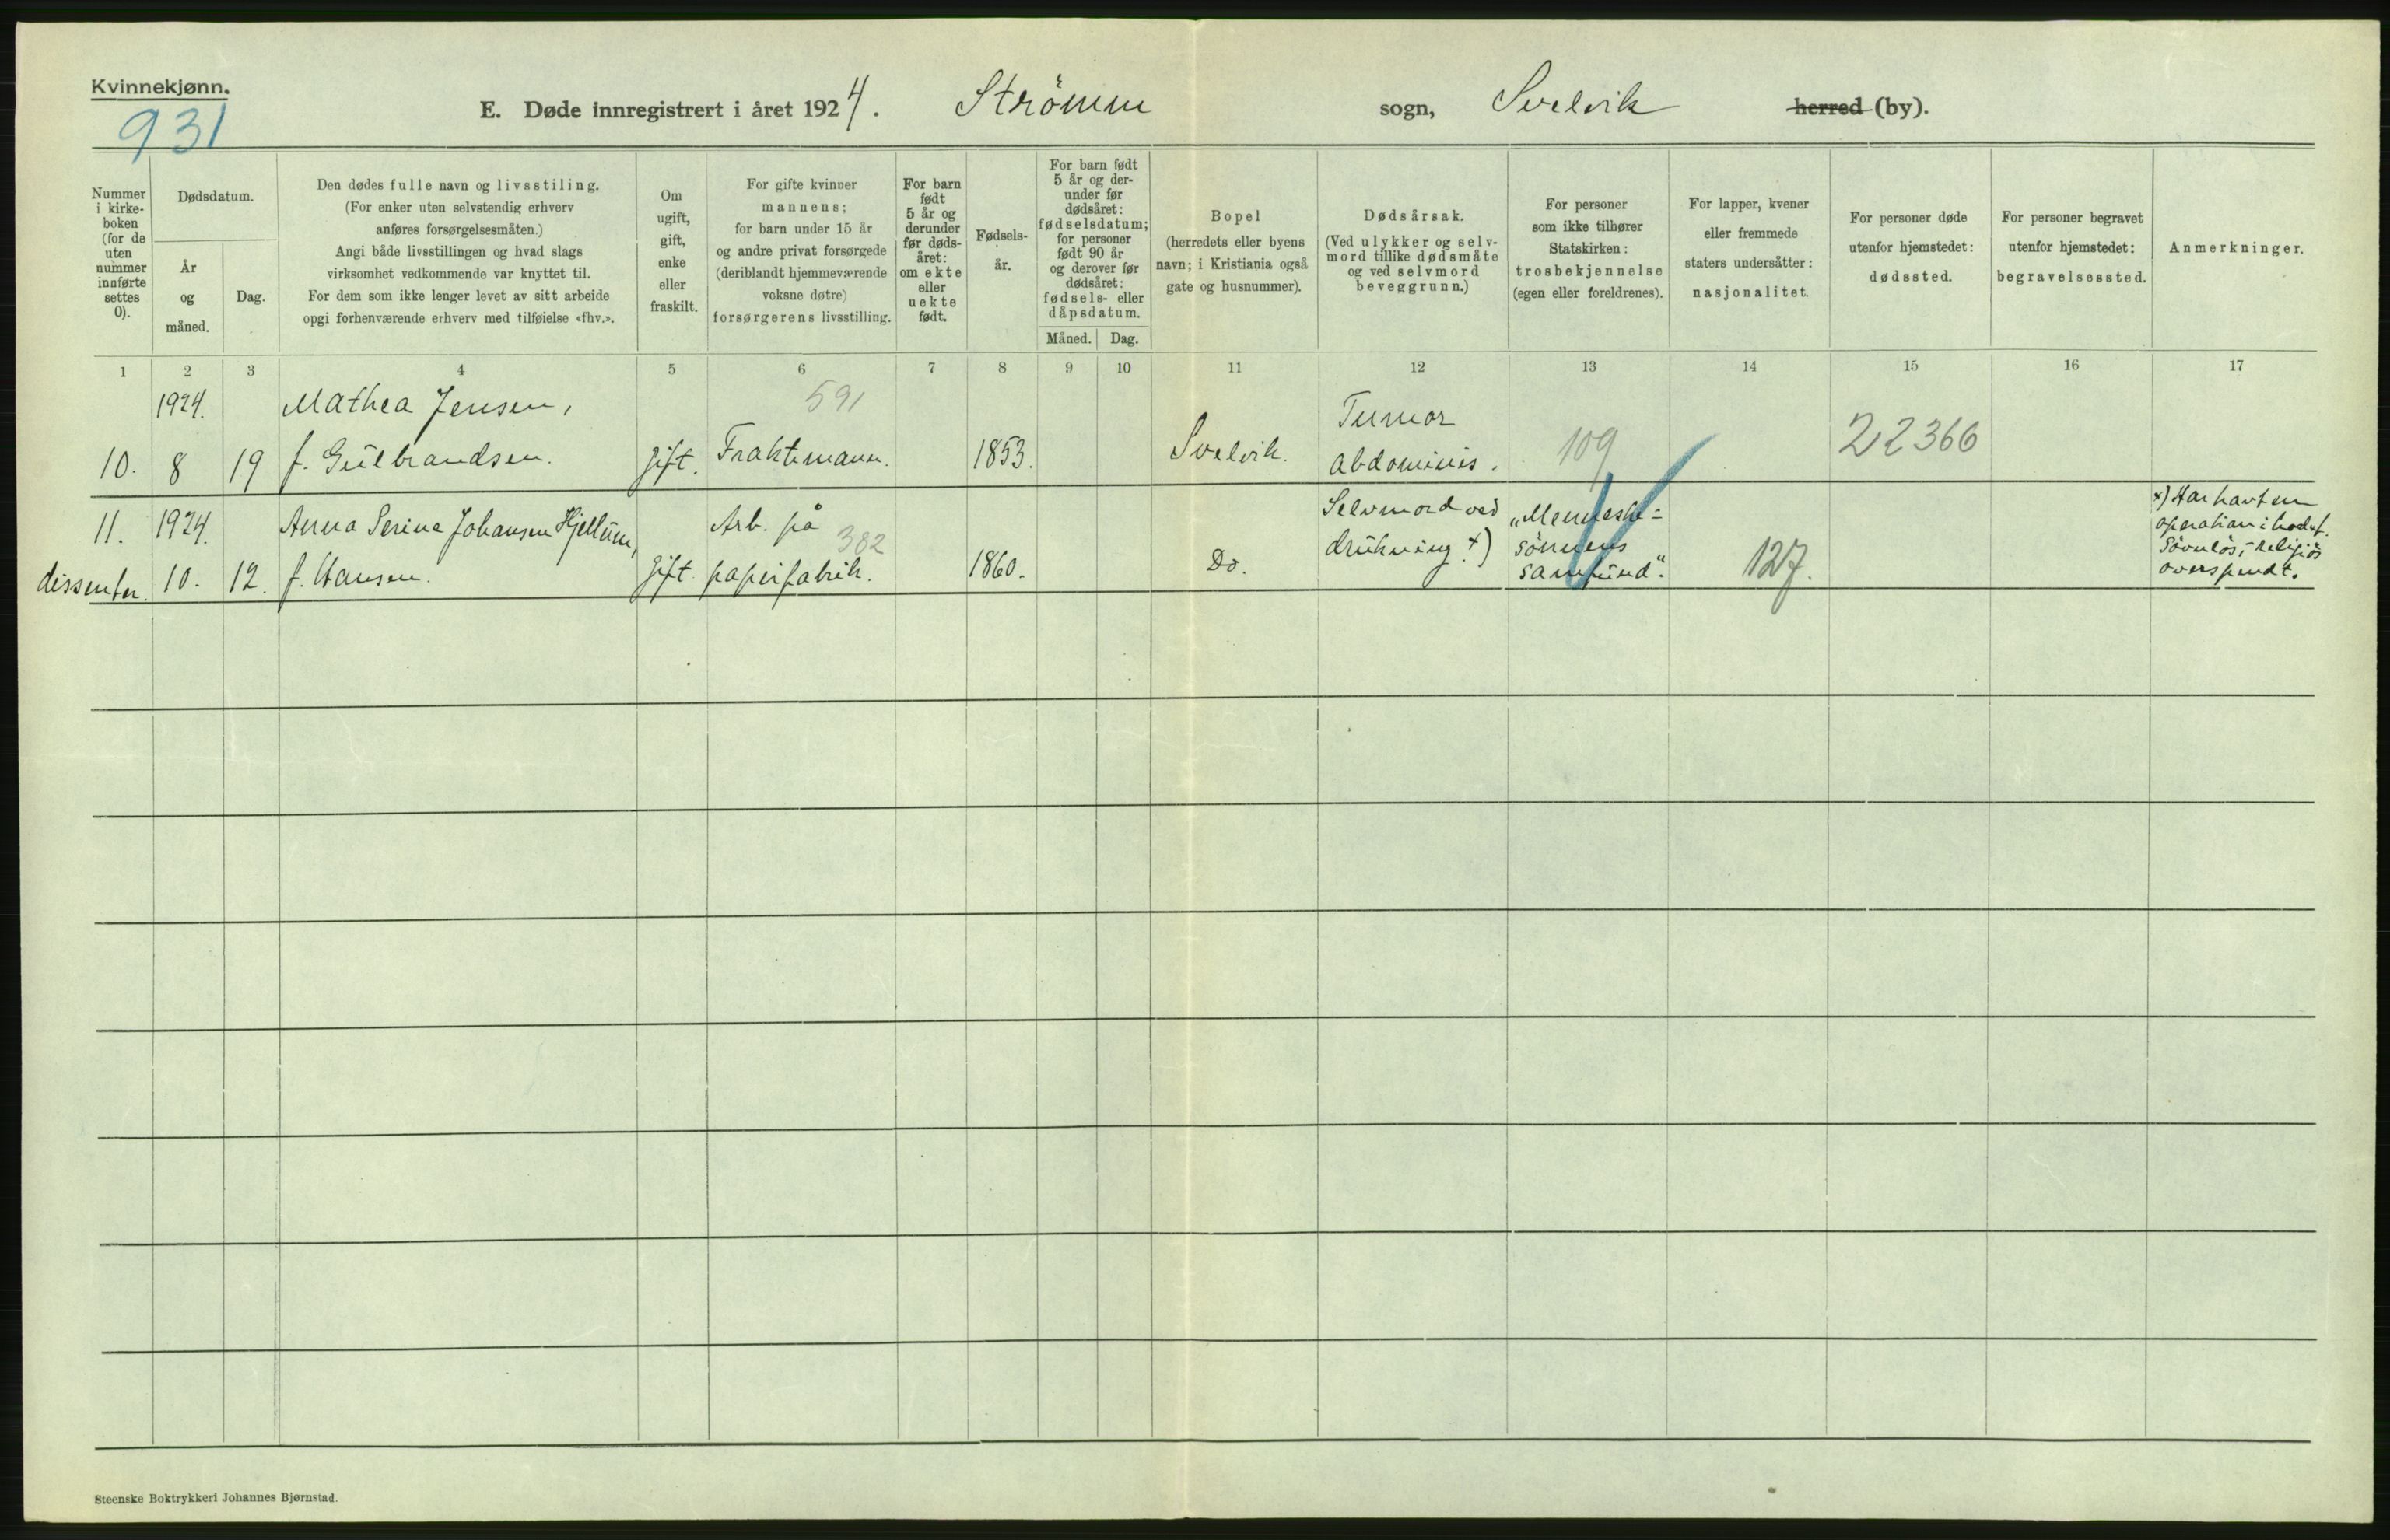 Kvinnekjønn.
931
E. Døde innregistrert i året 1924. Strömm sogn, Svelvik herred (by).
Nummer
i kirke-
boken
(for de
uten
nummer
innførte
settes
0).
Dødsdatum.
År
og
måned.
Dag.
Den dødes fulle navn og livsstiling.
(For enker uten selvstendig erhverv
anføres forsørgelsesmåten.)
Angi både livsstillingen og hvad slags
virksomhet vedkommende var knyttet til.
For dem som ikke lenger levet av sitt arbeide
opgi forhenværende erhverv med tilføielse «fhv.».
Om
ugift,
gift,
enke
eller
fraskilt.
For gifte kvinner
mannens;
for barn under 15 år
og andre privat forsørgede
(deriblandt hjemmeværende
voksne døtre)
forsørgerens livsstilling.
For barn
født
5 år og
derunder
før døds-
året:
om ekte
eller
uekte
født.
Fødsels-
år.
For barn født
5 år og der-
under før
dødsåret:
fødselsdatum;
for personer
født 90 år
og derover før
dødsåret:
fødsels- eller
dåpsdatum.
Måned. Dag.
Bopel
(herredets eller byens
navn; i Kristiania også
gate og husnummer).
Dødsårsak.
(Ved ulykker og selv-
mord tillike dødsmåte
og ved selvmord
beveggrunn.)
For personer
som ikke tilhører
Statskirken:
trosbekjennelse
(egen eller foreldrenes).
For lapper, kvener
eller fremmede
staters undersåtter:
nasjonalitet.
For personer døde
utenfor hjemstedet:
dødssted.
For personer begravet
utenfor hjemstedet:
begravelsessted.
Anmerkninger.
1 2 3 4 5 6 7 8 9 10 11 12 13 14 15 16 17
1924. Mathea Jensen, 591 Tumor
10. 8 19 f. Gulbrandsen. gift. Fraktemann. 1853. Svelvik. abdominis. 109 22366
11. 1924. Anna Serine Johansen Hjellum, Arb. på 382 Selvmord ved „Menneske=
dissenter. 10. 12. f. Hansen. gift. papirfabrik. 1860. Do. drukning. +) sönnens
samfund“. 127.
+) Har havt en
operation i hodet.
Sövnlös, religiös
overspendt.
Steenske Boktrykkeri Johannes Bjørnstad.